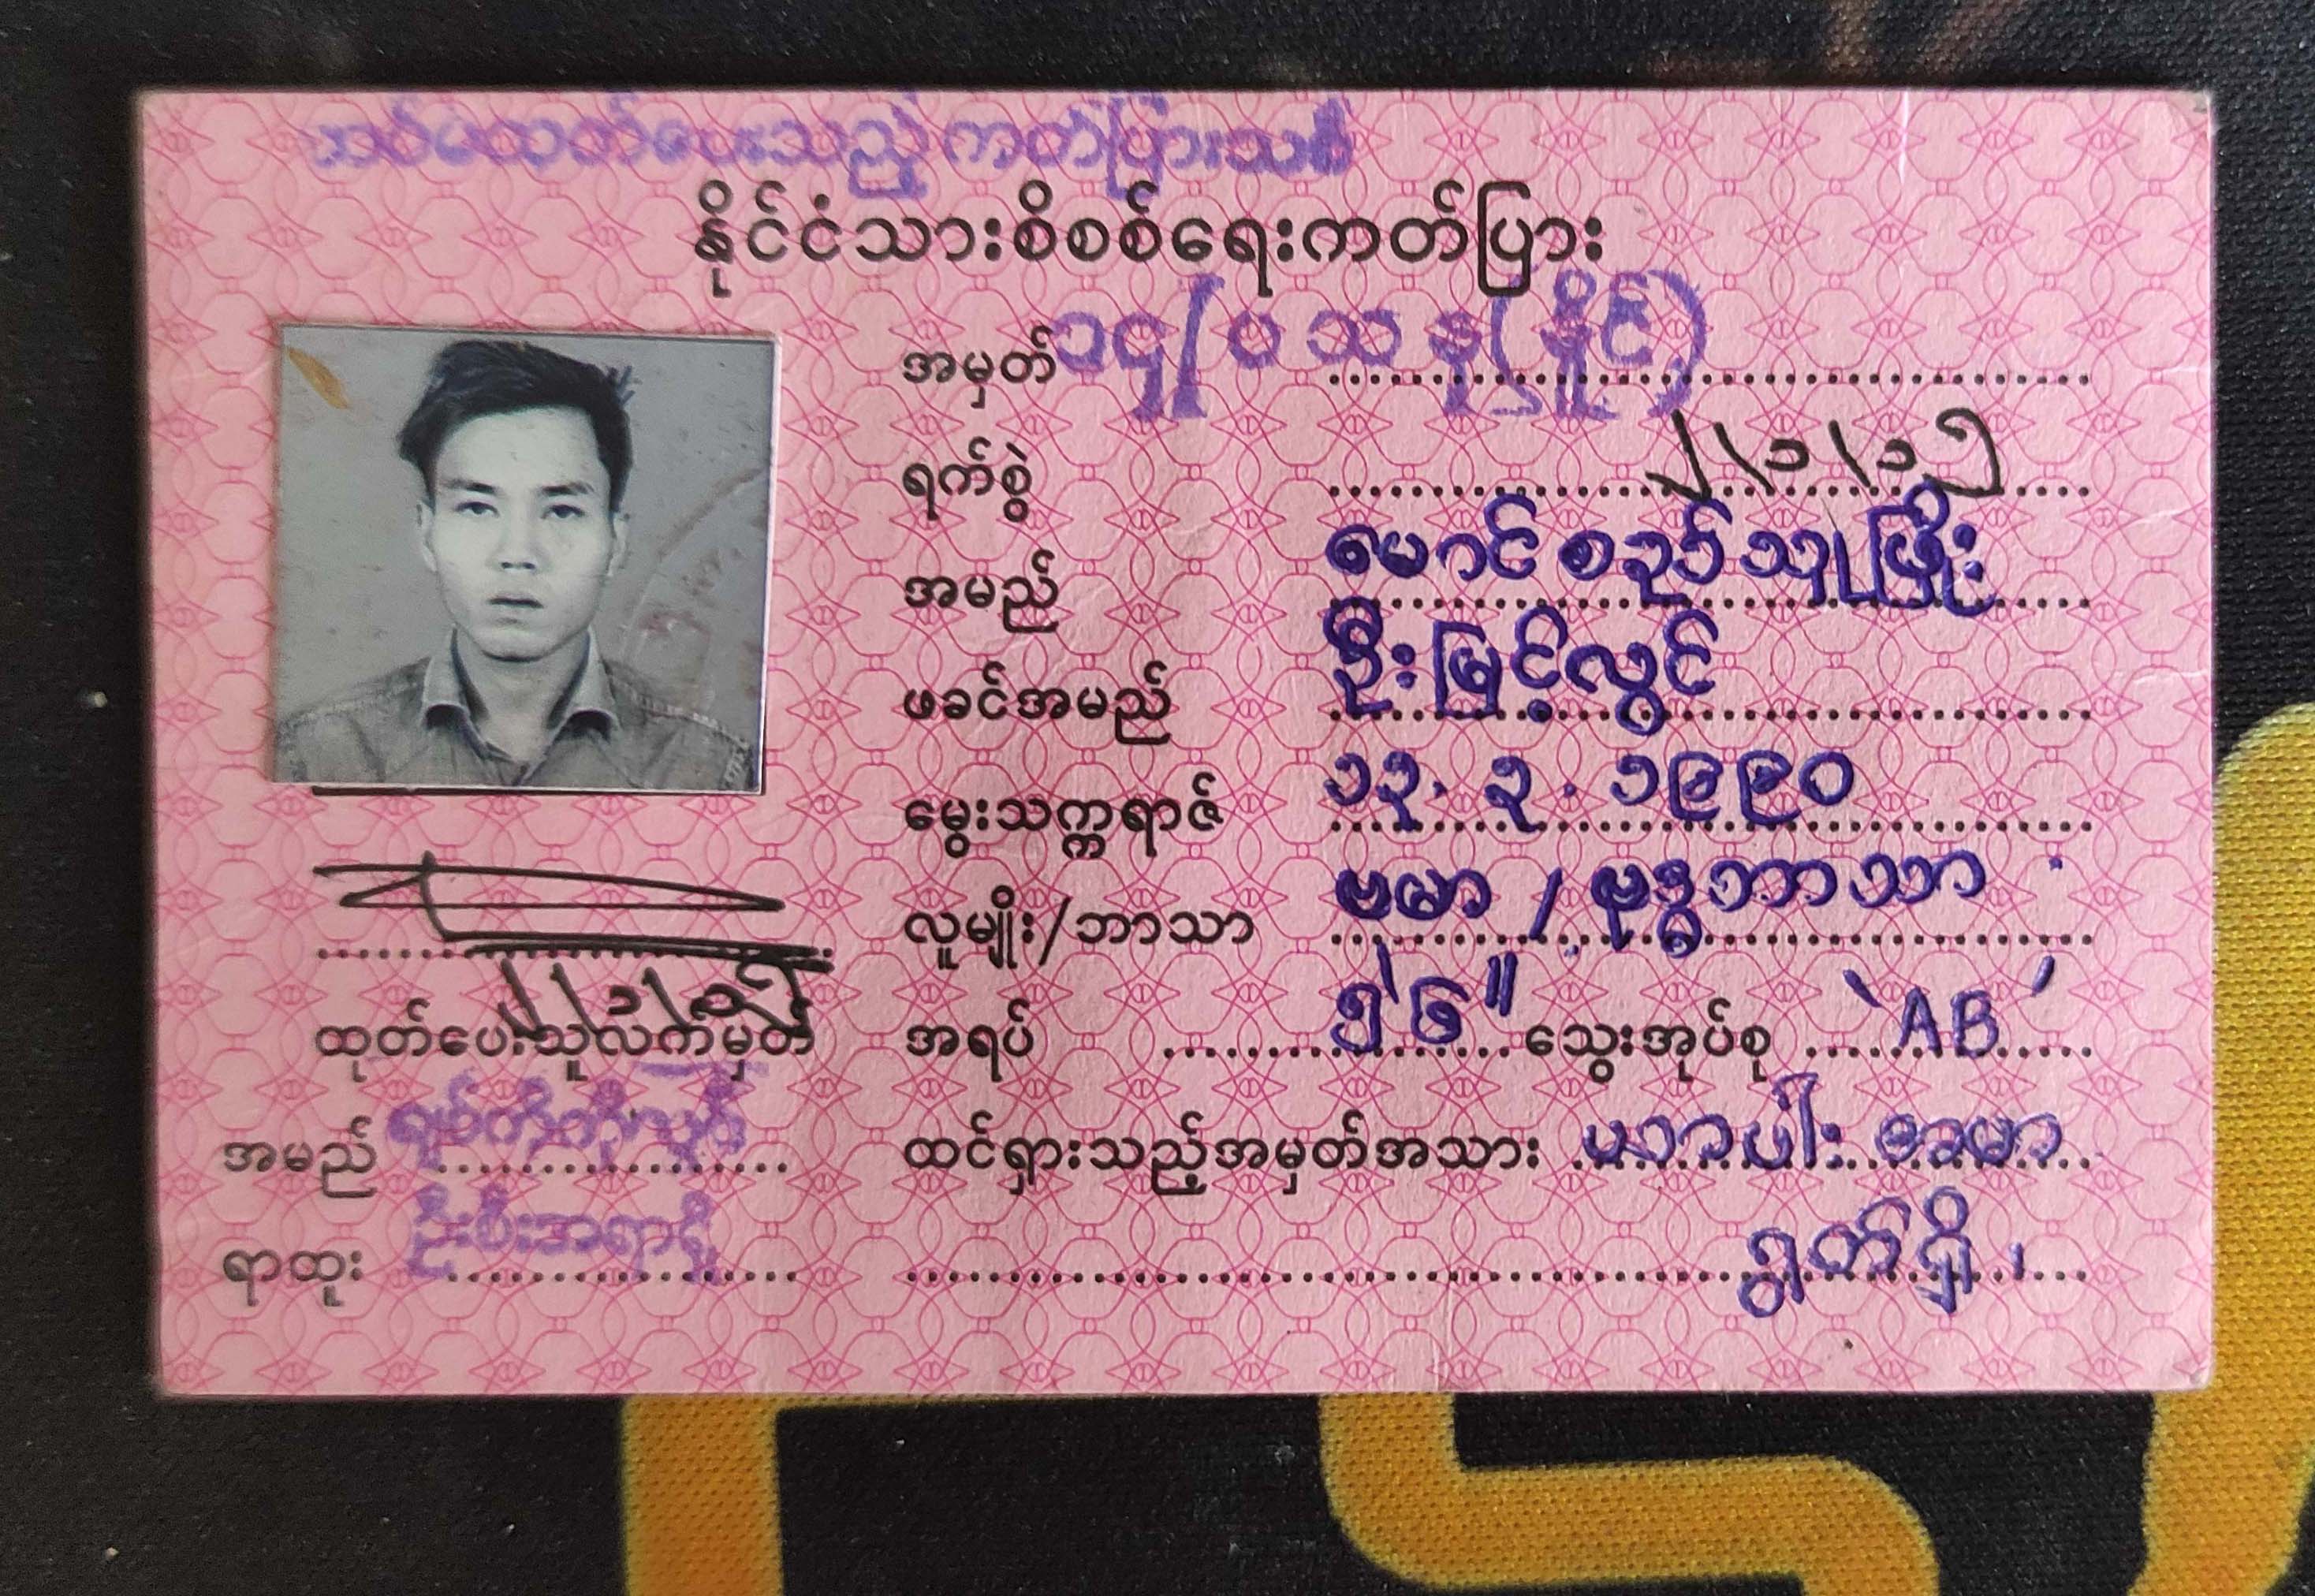 အပ်မံထုတ်ပေးသည့်ကတ်ပြားသစ်
နိုင်ငံသားစိစစ်ရေးကတ်ပြား
အမှတ် ၁၄/ပသန(နိုင်)
ရက်စွဲ
အမည် မောင်စည်သူဖြိုး
ဖခင်အမည် ဦးမြင့်လွင်
မွေးသက္ကရာဇ် ၁၃.၃.၁၉၉၀
လူမျိုး/ဘာသာ ဗမာ / ဗုဒ္ဓဘာသာ
အရပ် ၅' ၆" သွေးအုပ်စု 'AB'
ထင်ရှားသည့်အမှတ်အသား ယာပါး အမာ
ရွတ်ရှိ၊
ထုတ်ပေးသူလက်မှတ်
အမည်
ရာထူး ဦးစီးအရာရှိ